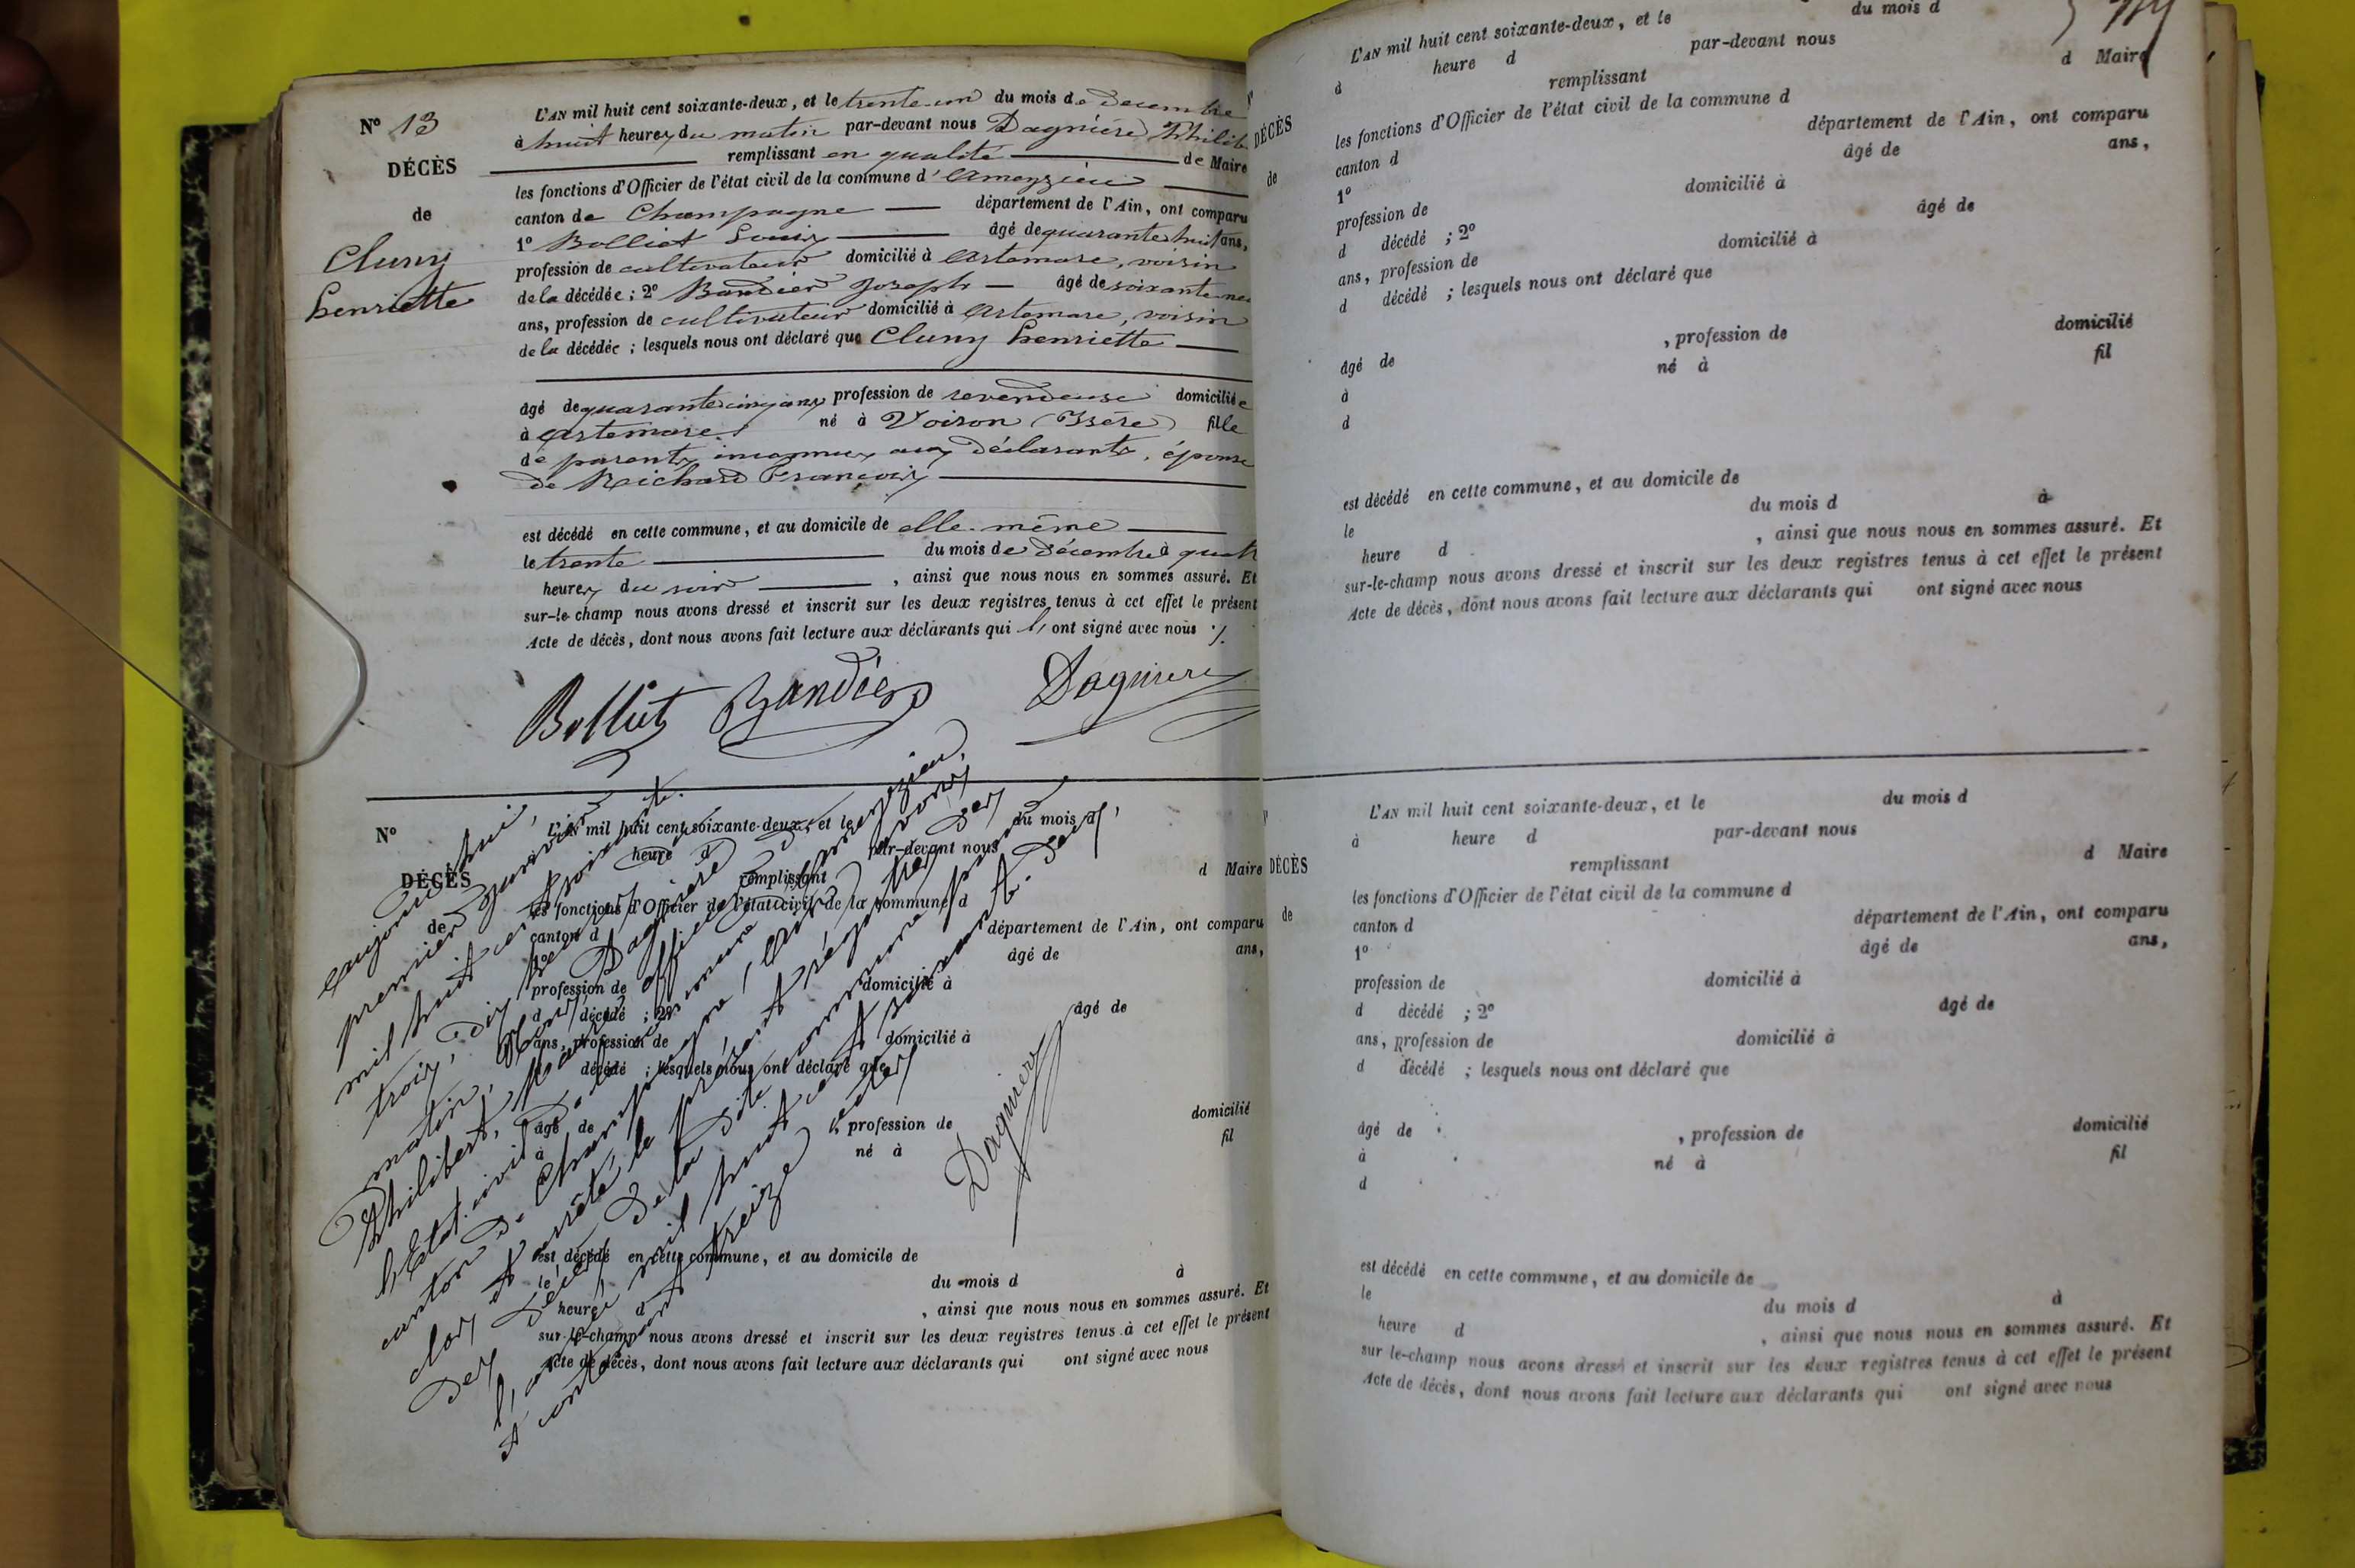 N° 13
DÉCÈS
de
Cluny
henriette
L'AN mil huit cent soixante-deux, et le trente-un du mois de Decembre
à huit heures du matin par-devant nous Dagnière Philib
remplissant en qualité de Maire
les fonctions d'Officier de l'état civil de la commune d'
canton de Champagne département de l'Ain, ont comparu
1° Bolliet Louis âgé de quarante huit ans,
profession de cultivateur domicilié à Artemare, voisin
de la décédée ; 2° Bandier Joseph âgé de soixante
ans, profession de cultivateur domicilié à Artemare, voisin
de la décédée ; lesquels nous ont déclaré que Cluny henriette
âgé de quarante cinq ans profession de revendeuse domiciliée
à Artemare né à Voiron (Isère) fille
de parents inconnus aux déclarants, épouse
de Richard François
est décédé en cette commune, et au domicile de elle-même
le trente du mois de Décembre à quat
heures du soir , ainsi que nous nous en sommes assuré. Et
sur-le-champ nous avons dressé et inscrit sur les deux registres tenus à cet effet le présent
Acte de décès, dont nous avons fait lecture aux déclarants qui ont signé avec nous
Bolliet Bandier Dagniere
N°
DÉCÈS
de
L'AN mil huit cent soixante-deux, et le du mois d
heure d par-devant nous
remplissant d Maire
les fonctions d'Officier de l'état civil de la commune d
canton d département de l'Ain, ont comparu
1° âgé de ans,
profession de domicilié à
d décédé ; 2° âgé de
ans, profession de domicilié à
d décédé ; lesquels nous ont déclaré que
âgé de , profession de domicilié
à né à fil
est décédé en cette commune, et au domicile de
le du mois d à
heure d , ainsi que nous nous en sommes assuré. Et
sur-le-champ nous avons dressé et inscrit sur les deux registres tenus à cet effet le présent
Acte de décès, dont nous avons fait lecture aux déclarants qui ont signé avec nous
aujourd'hui,
premier janvier
mil huit cent soixante
trois, dix heures du
matin, Nous, Dagniere
Philibert, Maire officier de
l'Etat civil de la commune
canton de Champagne, (Ain) avons
clos et arrêté le présent régistre des
décès de la dite commune pour
l'année mil huit cent soixante-deux,
et contenant treize actes
Dagniere
DÉCÈS
de
L'AN mil huit cent soixante-deux, et le du mois d
à heure d par-devant nous
remplissant d Maire
les fonctions d'Officier de l'état civil de la commune d
canton d département de l'Ain, ont comparu
1° âgé de ans,
profession de domicilié à
d décédé ; 2° âgé de
ans, profession de domicilié à
d décédé ; lesquels nous ont déclaré que
âgé de , profession de domicilié
à né à fil
d
est décédé en cette commune, et au domicile de
le du mois d à
heure d , ainsi que nous nous en sommes assuré. Et
sur-le-champ nous avons dressé et inscrit sur les deux registres tenus à cet effet le présent
Acte de décès, dont nous avons fait lecture aux déclarants qui ont signé avec nous
DÉCÈS
de
L'AN mil huit cent soixante-deux, et le du mois d
à heure d par-devant nous
remplissant d Maire
les fonctions d'Officier de l'état civil de la commune d
canton d département de l'Ain, ont comparu
1° âgé de ans,
profession de domicilié à
d décédé ; 2° âgé de
ans, profession de domicilié à
d décédé ; lesquels nous ont déclaré que
âgé de , profession de domicilié
à né à fil
d
est décédé en cette commune, et au domicile de
le du mois d à
heure d , ainsi que nous nous en sommes assuré. Et
sur le-champ nous avons dressé et inscrit sur les deux registres tenus à cet effet le présent
Acte de décès, dont nous avons fait lecture aux déclarants qui ont signé avec nous